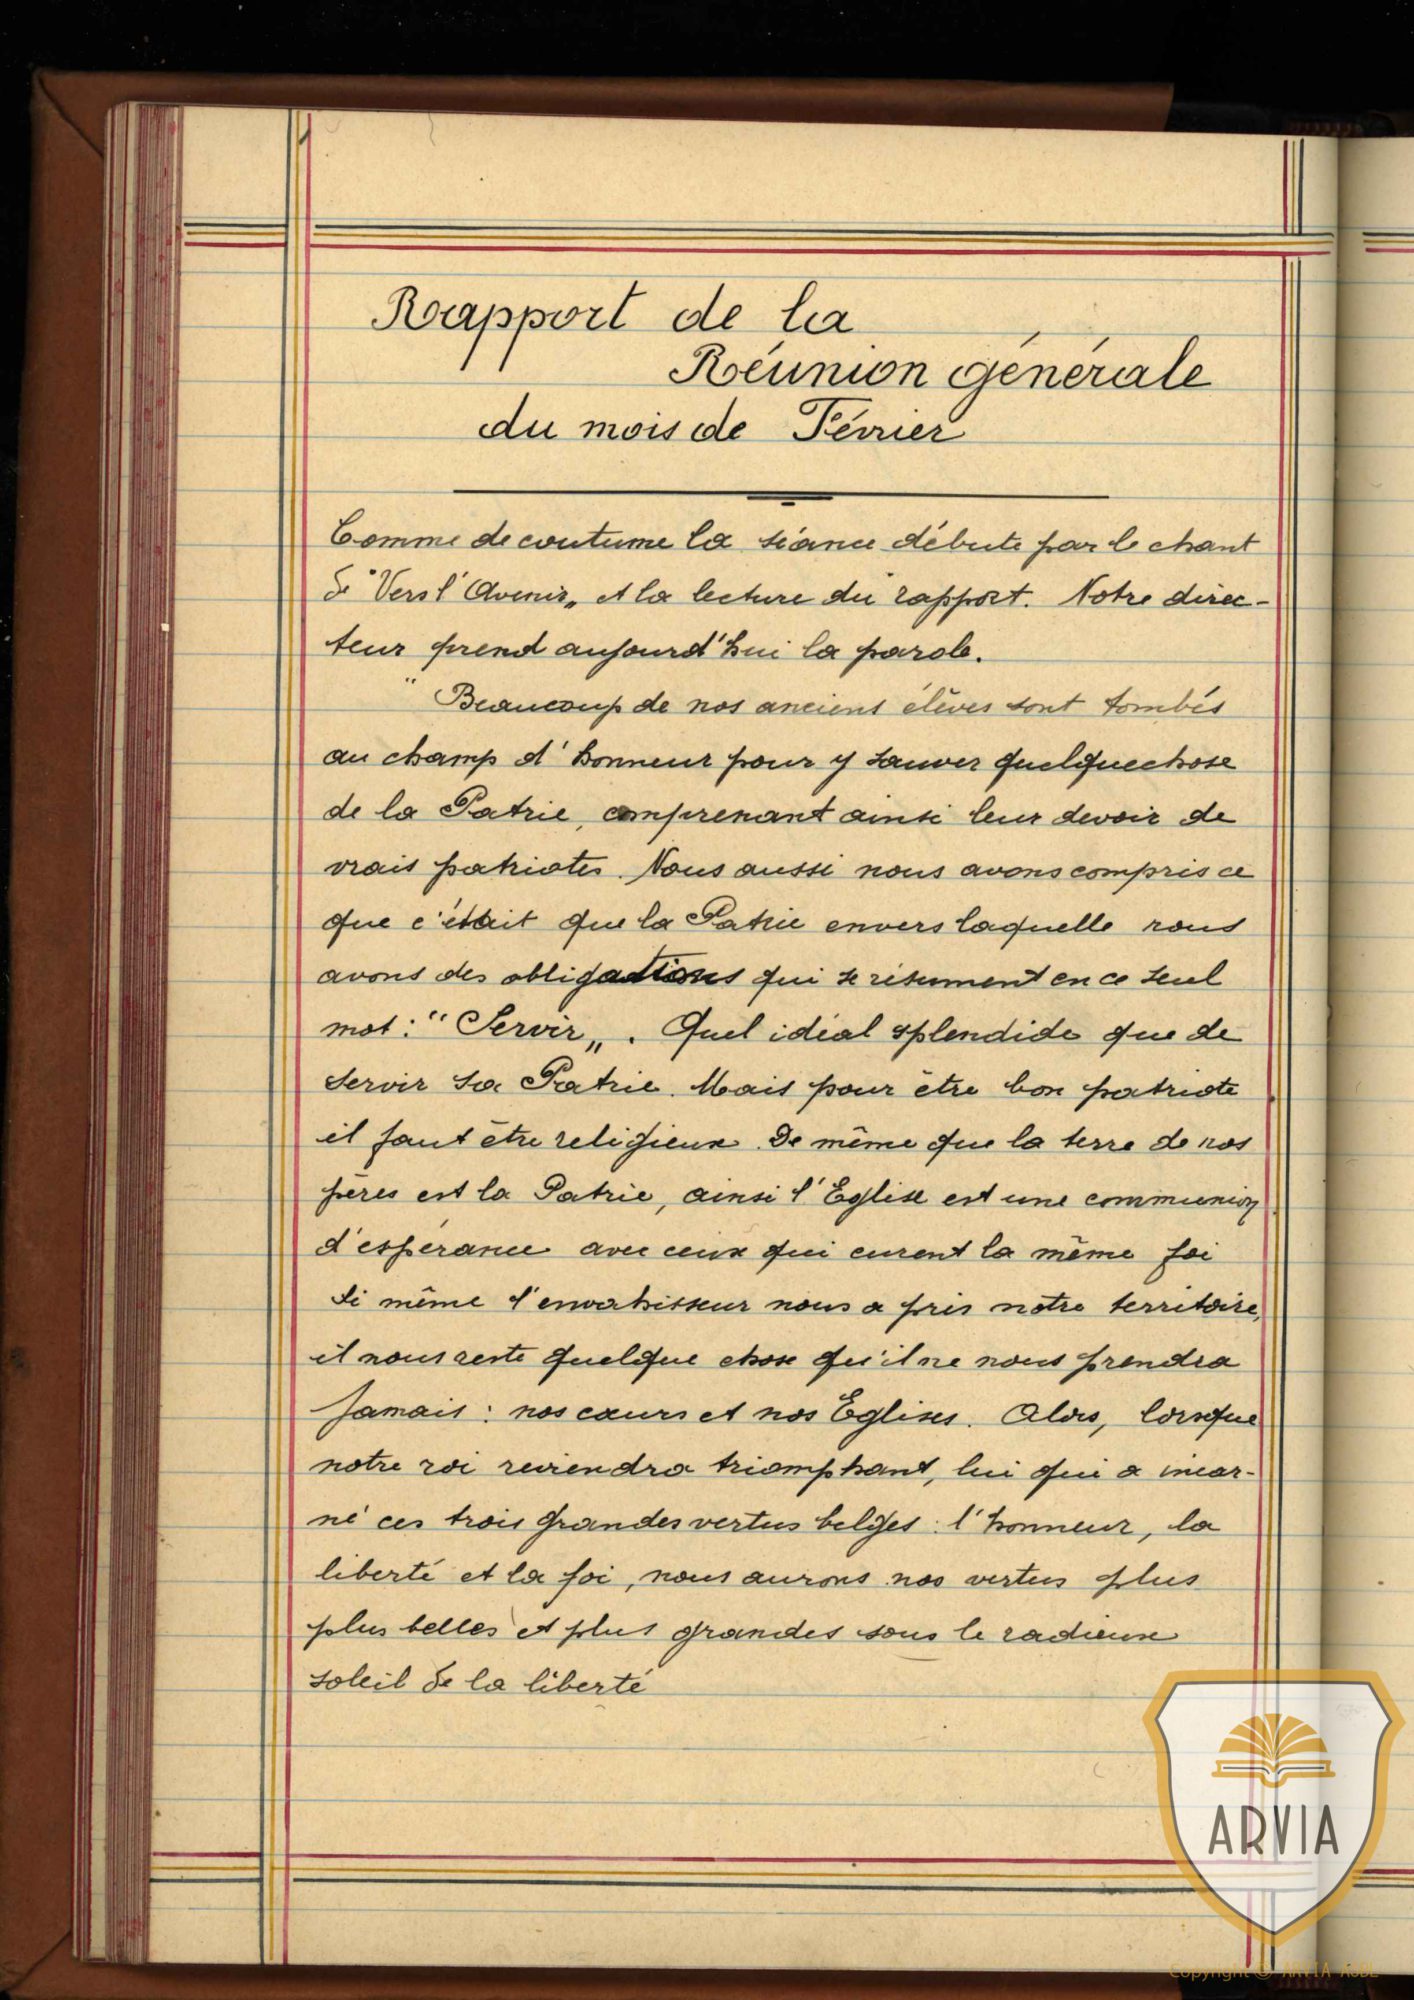 Rapport de la
Réunion générale
du mois de Février
Comme de coutume la séance débute par le chant
de "Vers l'Avenir„ et la lecture du rapport. Notre direc-
teur prend aujourd'hui la parole.
"Beaucoup de nos anciens élèves sont tombés
au champ d'honneur pour y sauver quelquechose
de la Patrie, comprenant ainsi leur devoir de
vrais patriotes. Nous aussi nous avons compris ce
que c'était que la Patrie envers laquelle nous
avons des obligations qui se résument en ce seul
mot : "Servir„. Quel idéal splendide que de
servir sa Patrie. Mais pour être bon patriote
il faut être religieux. De même que la terre de nos
pères est la Patrie, ainsi l'Eglise est une communion
d'espérance avec ceux qui eurent la même foi
Si même l'envahisseur nous a pris notre territoire,
il nous reste quelque chose qu'il ne nous prendra
Jamais : nos cœurs et nos Eglises. Alors, lorsque
notre roi reviendra triomphant, lui qui a incar-
né ces trois grandes vertus belges : l'honneur, la
liberté et la foi, nous aurons nos vertus plus
plus belles et plus grandes sous le radieux
soleil de la liberté
ARVIA
Copyright © ARVIA ASBL